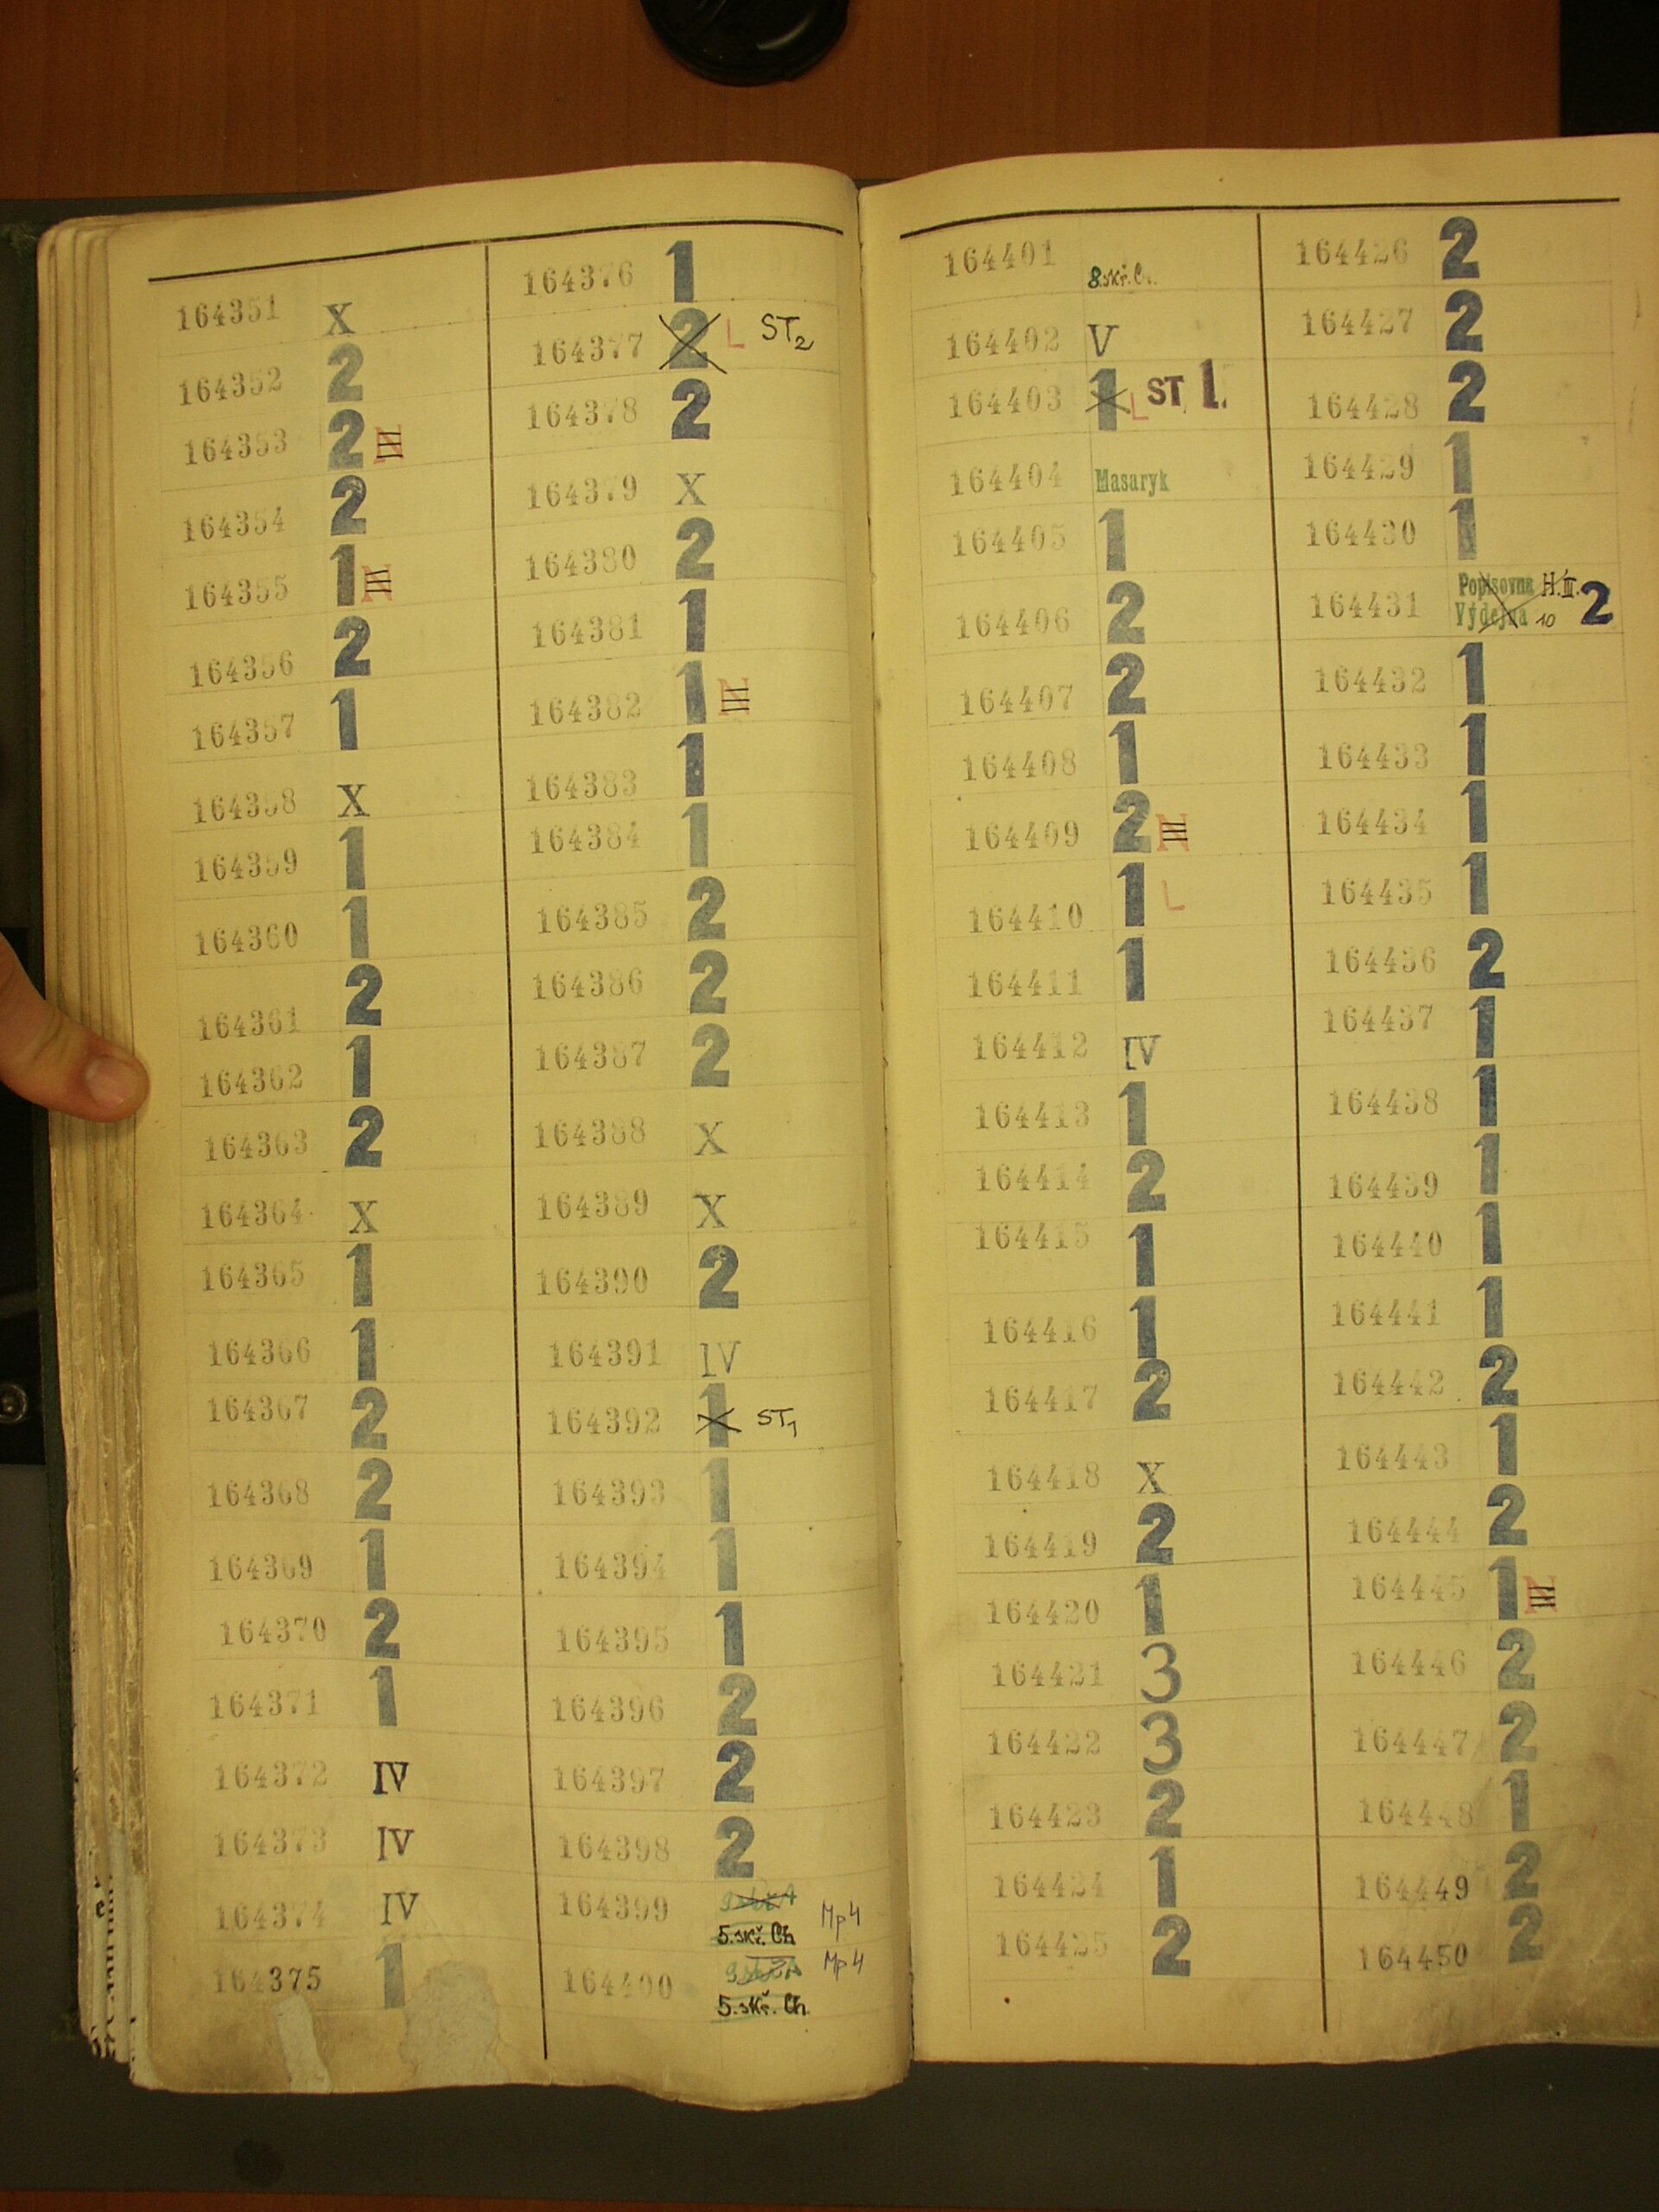 164351 X
164352 2
164353 2 N
164354 2
164355 1 N
164356 2
164357 1
164358 X
164359 1
164360 1
164361 2
164362 1
164363 2
164364 X
164365 1
164366 1
164367 2
164368 2
164369 1
164370 2
164371 1
164372 IV
164373 IV
164374 IV
164375 1
164376 1
164377 2 L ST2
164378 2
164379 X
164380 2
164381 1
164382 1 N
164383 1
164384 1
164385 2
164386 2
164387 2
164388 X
164389 X
164390 2
164391 IV
164392 1 ST1
164393 1
164394 1
164395 1
164396 2
164397 2
164398 2
164399
5.skř. Ch Mp4
164400 Mp4
5.skř. Ch.
164401
8.skř.
164402 V
164403 1 L ST. 1.
164404 Masaryk
164405 1
164406 2
164407 2
164408 1
164409 2 N
164410 1 L
164411 1
164412 IV
164413 1
164414 2
164415 1
164416 1
164417 2
164418 X
164419 2
164420 1
164421 3
164422 3
164423 2
164424 1
164425 2
164426 2
164427 2
164428 2
164429 1
164430 1
Popisovna H.III.
164431 Výdejna 10 2
164432 1
164433 1
164434 1
164435 1
164436 2
164437 1
164438 1
164439 1
164440 1
164441 1
164442 2
164443 1
164444 2
164445 1 N
164446 2
164447 2
164448 1
164449 2
164450 2